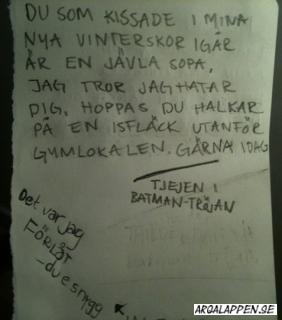 DU SOM KISSADE I MINA
NYA VINTERSKOR IGÅR
ÄR EN JÄVLA SOPA,
JAG TROR JAG HATAR
DIG. HOPPAS DU HALKAR
PÅ EN ISFLÄCK UTANFÖR
GYMLOKALEN. GÄRNA IDAG
TJEJEN I
BATMAN-TRÖJAN
Det var jag
FÖRLÅT
- du e snygg
ARGALAPPEN.SE